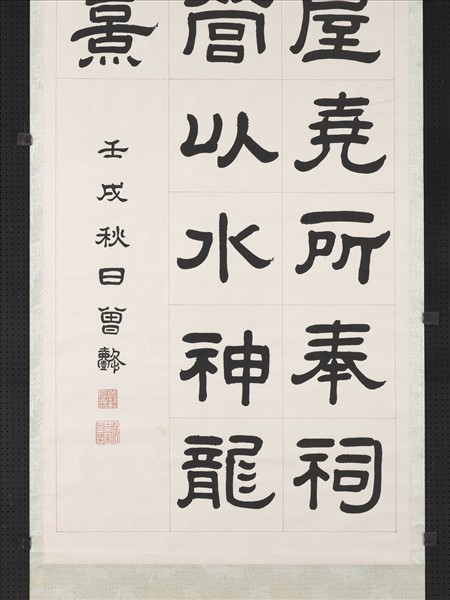 屋堯所奉祠
營以水神龍
景
壬戌秋日曾